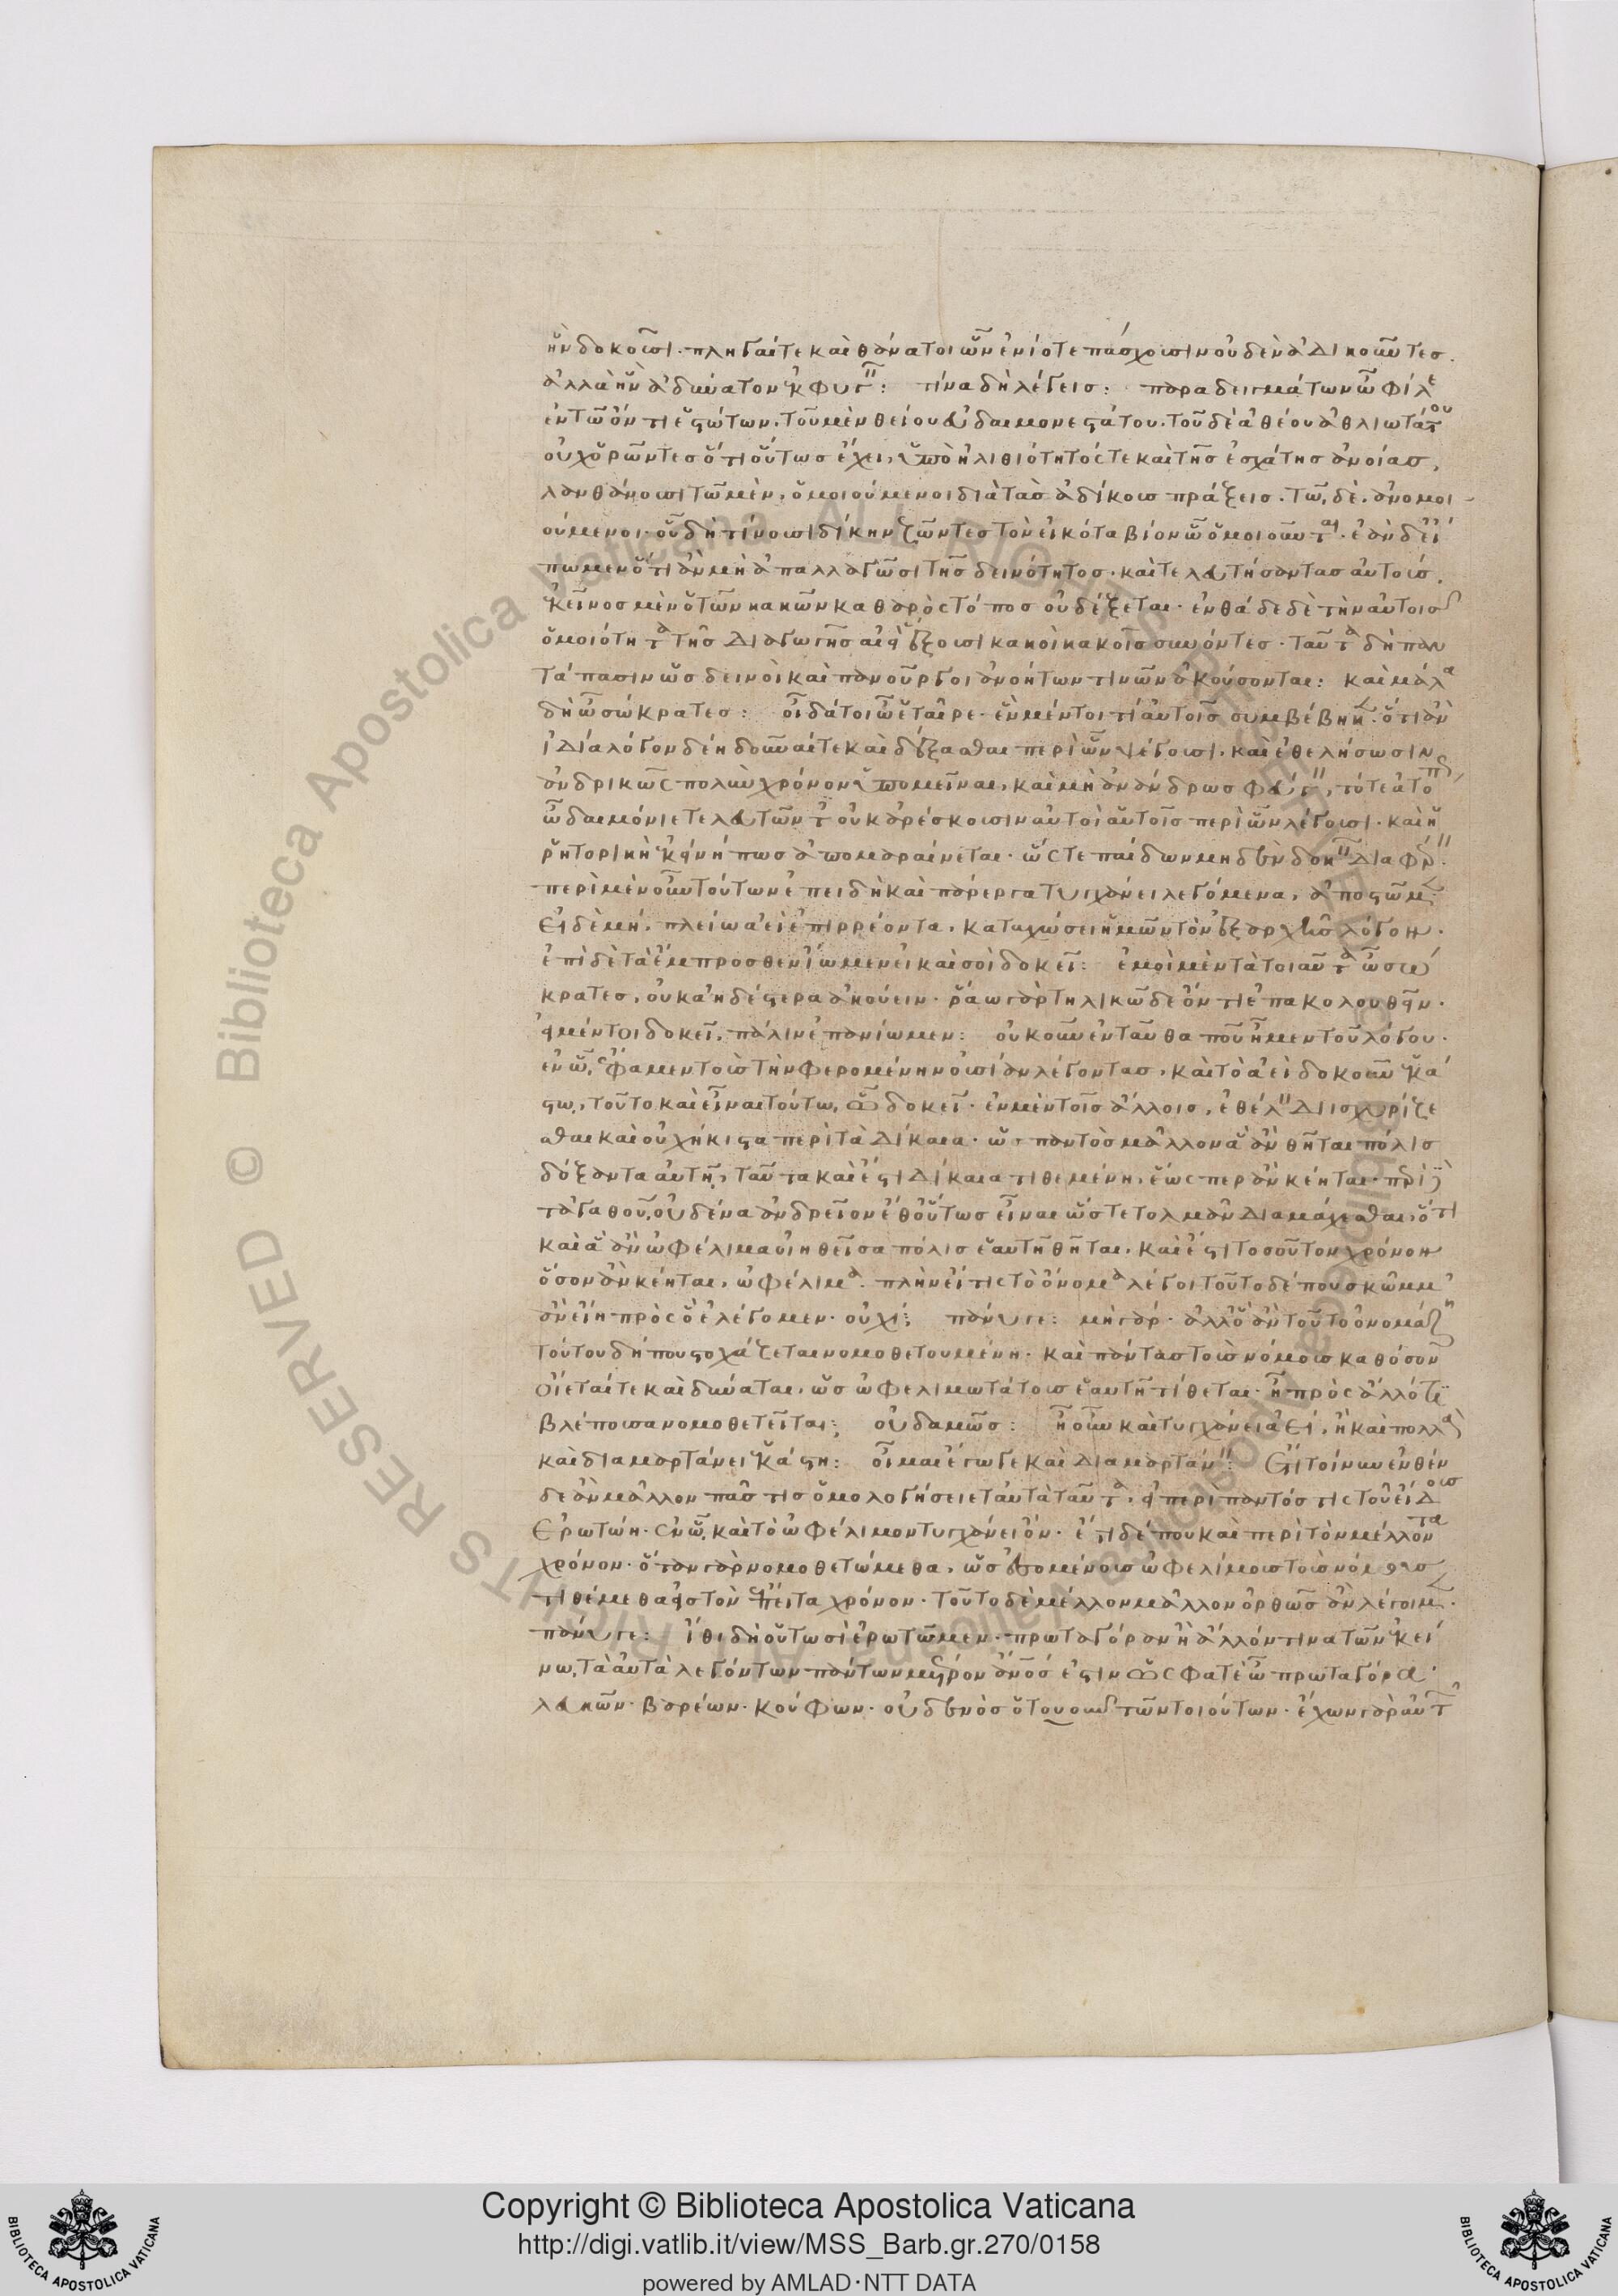 ἣν δοκοῦσι· πληγαί τε καὶ θάνατοι ὧν ἐνίοτε πάσχουσιν οὐδὲν ἀδικοῦντες·
ἀλλὰ ἣν ἀδύνατον ἐκφυγεῖν: τίνα δὴ λέγεις: παραδειγμάτων ὦ φίλε
ἐν τῶ ὄντι ἑστώτων· τοῦ μὲν θείου εὐδαιμονεστάτου· τοῦ δὲ ἀθέου ἀθλιωτάτου
οὐχ ὁρῶντες ὅτι οὕτως ἔχει, ὑπὸ ἠλιθιότητός τε καὶ τῆς ἐσχάτης ἀνοίας,
λανθάνουσι τῶ μὲν, ὁμοιούμενοι διὰ τὰς ἀδίκους πράξεις· τῶ, δὲ, ἀνομοι-
ούμενοι· οὗ δὴ τίνουσι δίκην ζῶντες τὸν εἰκότα βίον ὧ ὁμοιοῦνται· ἐὰν δ' εἴ
πωμεν ὅτι ἂν μὴ ἀπαλλαγῶσι τῆς δεινότητος, καὶ τελευτήσαντας αὐτοὺς,
ἐκεῖνος μὲν ὁ τῶν κακῶν καθαρὸς τόπος οὐ δέξεται· ἐνθάδε δὲ τὴν αὑτοῖς
ὁμοιότητα τῆς διαγωγῆς ἀεὶ ἕξουσι κακοὶ κακοῖς συνόντες· ταῦτα δὴ παν
τάπασιν ὡς δεινοὶ καὶ πανοῦργοι ἀνοήτων τινῶν ἀκούσονται: καὶ μάλα
δὴ ὦ σώκρατες: οἶδά τοι ὦ ἑταῖρε· ἓν μέντοι τι αὐτοῖς συμβέβηκεν· ὅτι ἂν
ἰδία λόγον δέη δοῦναί τε καὶ δέξασθαι περὶ ὧν ψέγουσι, καὶ ἐθελήσωσιν
ἀνδρικῶς πολὺν χρόνον ὑπομεῖναι, καὶ μὴ ἀνάνδρως φεύγειν, τότε ἀτόπως
ὦ δαιμόνιε τελευτῶντες οὐκ ἀρέσκουσιν αὐτοὶ αὑτοῖς περὶ ὧν λέγουσι· καὶ ἡ
ῥητορικὴ ἐκείνή πως ἀπομαραίνεται· ὥστε παίδων μηδὲν δοκεῖν διαφέρειν·
περὶ μὲν οὖν τούτων ἐπειδὴ καὶ πάρεργα τυγχάνει λεγόμενα, ἀποστῶμεν·
εἰ δὲ μή, πλείω ἀεὶ ἐπιρρέοντα, καταχώσει ἡμῶν τὸν ἐξ ἀρχῆς λόγον·
ἐπὶ δὲ τὰ ἔμπροσθεν ἴωμεν εἰ καὶ σοὶ δοκεῖ: ἐμοὶ μὲν τὰ τοιαῦτα ὦ σώ
κρατες, οὐκ ἀηδέστερα ἀκούειν· ῥάω γὰρ τηλικῶδε ὄντι ἐπακολουθεῖν·
εἰ μέντοι δοκεῖ, πάλιν ἐπανίωμεν: οὐκοῦν ἐνταῦθά που ἦμεν τοῦ λόγου·
ἐν ὧ, ἔφαμεν τοὺς τὴν φερομένην οὐσίαν λέγοντας, καὶ τὸ ἀεὶ δοκοῦν ἑκά
στω, τοῦτο καὶ εἶναι τούτω, ὧ δοκεῖ· ἐν μὲν τοῖς ἄλλοις, ἐθέλειν διισχυρίζε
σθαι καὶ οὐχ ἥκιστα περὶ τὰ δίκαια· ὡς παντὸς μᾶλλον ἃ ἂν θῆται πόλις
δόξαντα αὑτῆ, ταῦτα καὶ ἔστι δίκαια τιθεμένη, ἕωσπερ ἂν κέηται· περὶ δὲ
τἀγαθοῦ, οὐδένα ἀνδρεῖον ἔθ' οὕτως εἶναι ὥστε τολμᾶν διαμάχεσθαι, ὅτι
καὶ ἃ ἂν ὠφέλιμα οἰηθεῖσα πόλις ἑαυτῆ θῆται, καὶ ἔστι τοσοῦτον χρόνον
ὅσον ἂν κέηται, ὠφέλιμα· πλὴν εἴ τις τὸ ὄνομα λέγοι τοῦτο δέ που σκῶμμ'
ἂν εἴη πρὸς ὃ ἐλέγομεν· οὐχί; πάνυ γε: μὴ γὰρ· ἀλλ' ὃ ἂν τοῦτο ὀνομάζη
τούτου δήπου στοχάζεται νομοθετουμένη· καὶ πάντας τοὺς νόμους καθόσον
οἴεταί τε καὶ δύναται, ὡς ὠφελιμωτάτους ἑαυτῆ τίθεται· ἢ πρὸς ἄλλό τι
βλέπουσα νομοθετεῖται; οὐδαμῶς: ἦ οὖν καὶ τυγχάνει ἀεί, ἢ καὶ πολλὰ
καὶ διαμαρτάνει ἑκάστη: οἶμαι ἔγωγε καὶ διαμαρτάνειν: ἔτι τοίνυν ἐνθέν
δε ἂν μᾶλλον πᾶς τις ὁμολογήσειε ταὐτὰ ταῦτα, εἰ περὶ παντός τις τοῦ εἴδους
ἐρωτώη· ἐν ὧ, καὶ τὸ ὠφέλιμον τυγχάνει ὄν· ἔστι δέ που καὶ περὶ τὸν μέλλοντα
χρόνον· ὅταν γὰρ νομοθετώμεθα, ὡς ἐσομένους ὠφελίμους τοὺς νόμους
τιθέμεθα εἰς τὸν ἔπειτα χρόνον· τοῦτο δὲ μέλλον μᾶλλον ὀρθῶς ἂν λέγοιμεν·
πάνυ γε: ἴθι δὴ οὑτωσὶ ἐρωτῶμεν· πρωταγόραν ἢ ἄλλόν τινα τῶν ἐκεί
νω, τὰ αὐτὰ λεγόντων πάντων μέτρον ἄνθρωπός ἐστιν ὥς φατὲ ὦ πρωταγόρα·
λευκῶν· βαρέων· κούφων· οὐδενὸς ὅτου οὐ τῶν τοιούτων· ἔχων γὰρ αὐτῶν
Copyright © Biblioteca Apostolica Vaticana
http://digi.vatlib.it/view/MSS_Barb.gr.270/0158
powered by AMLAD·NTT DATA